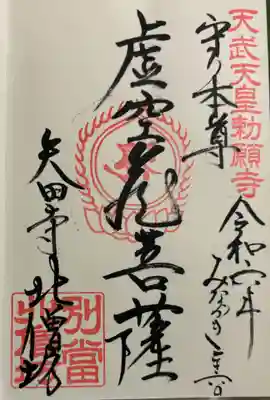 天武天皇勅願寺
守り本尊
令和六年
みなづき
虚空蔵菩薩
矢田寺北僧坊
別當